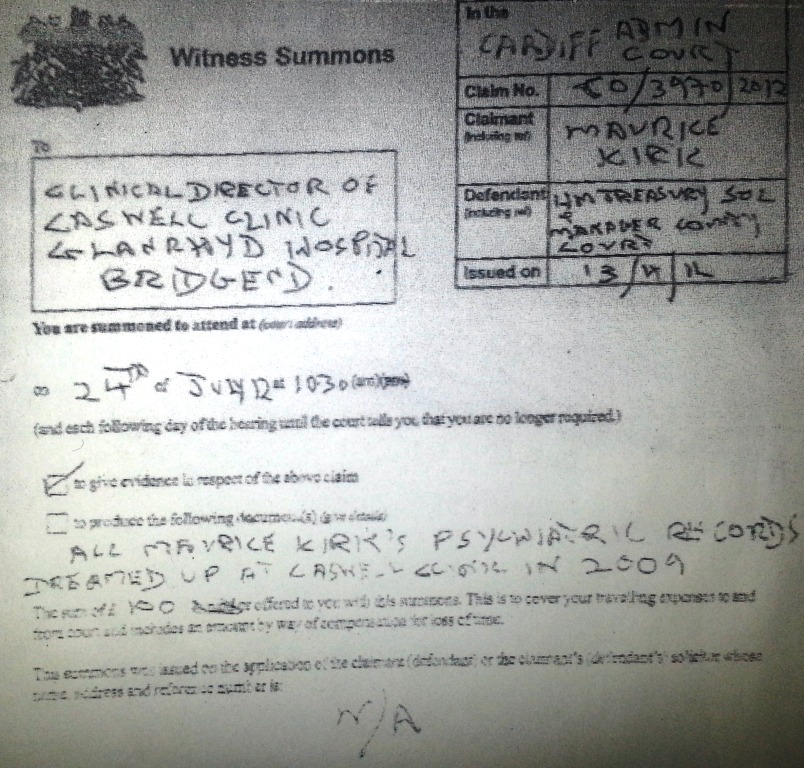 Witness Summons
In the
CARDIFF ADMIN
COURT
Claim No. CO/3970/2012
Claimant
(including ref)
MAURICE
KIRK
Defendant
(including ref)
HM TREASURY SOL
&
COUNTY
COURT
Issued on 13/
To
CLINICAL DIRECTOR OF
CASWELL CLINIC
GLANRHYD HOSPITAL
BRIDGEND.
You are summoned to attend at (court address)
on 24TH of JULY 12 at 1030 (am)(pm)
(and each following day of the hearing until the court tells you that you are no longer required.)
to give evidence in respect of the above claim
to produce the following document(s) (give details)
ALL MAURICE KIRK'S PSYCHIATRIC RECORDS
DREAMED UP AT CASWELL CLINIC IN 2009
The sum of £ 100 is offered to you with this summons. This is to cover your travelling expenses to and
from court and includes an amount by way of compensation for loss of time.
This summons was issued on the application of the claimant (defendant) or the claimant's (defendant's) solicitor whose
name, address and reference number is:
N/A